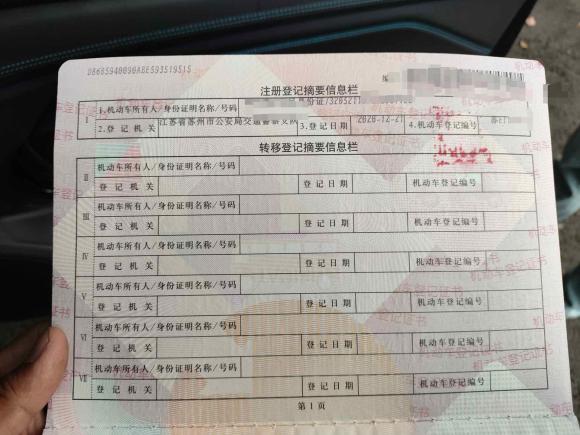 注册登记摘要信息栏
I 1.机动车所有人/身份证明名称/号码
2.登记机关 江苏省苏州市公安局交通警察支队 3.登记日期 2020-12-21 4.机动车登记编号
转移登记摘要信息栏
II 机动车所有人/身份证明名称/号码
登记机关 登记日期 机动车登记编号
III 机动车所有人/身份证明名称/号码
登记机关 登记日期 机动车登记编号
IV 机动车所有人/身份证明名称/号码
登记机关 登记日期 机动车登记编号
V 机动车所有人/身份证明名称/号码
登记机关 登记日期 机动车登记编号
VI 机动车所有人/身份证明名称/号码
登记机关 登记日期 机动车登记编号
VII 机动车所有人/身份证明名称/号码
登记机关 登记日期 机动车登记编号
第1页